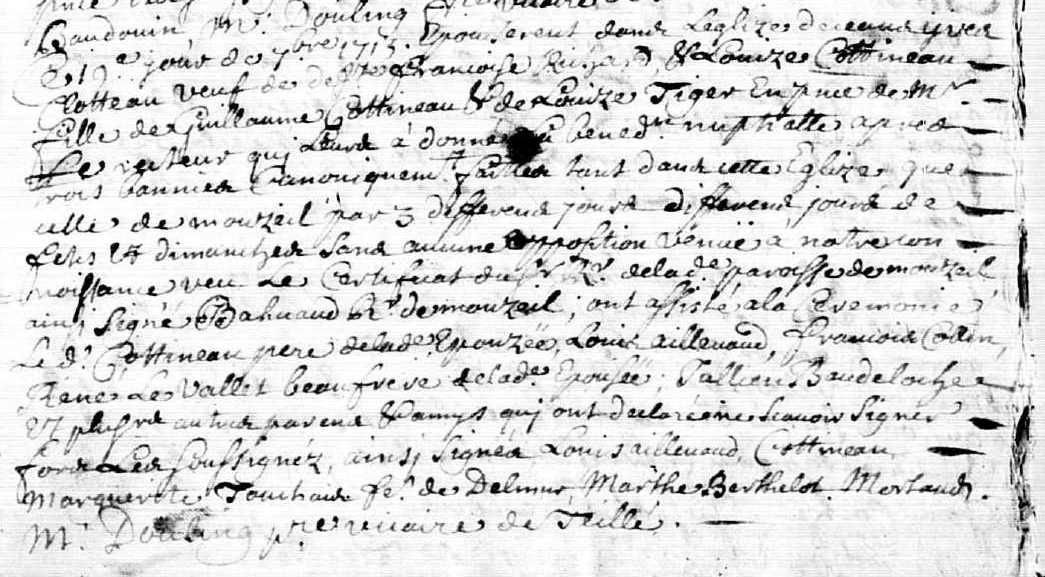 Baudouin M.r Douling
Le 19e jour de 7bre 1713. Epouserent dans Leglize de ceans yves
Clotteau veuf de deffte Francoise &. Louize Cottineau
fille de Guillaume Cottineau & de Louize Tiger En pnce de Mr.
Le recteur quj Leurs à donné la bened.n nuptialle apres
Trois bannies Canoniquem.t faittes tant dans cette Eglize que
celle de mouzeil par 3 differends jours differends jours de
festes et dimanches sans aucune opposition venüe a notre con
noissance veu Le Certificat du Sr. Rr. delade. paroisse de mouzeil
ainsj signé Bahuaud Rr. de mouzeil, ont assisté ala Ceremonie
Le d. Cottineau pere delade. Epouzée, Louis aillevaud, Francois Collin,
René Le Vallet beaufrere delade. Epousée, Jullien Baudeloche
Et plusrs autres parens & amys quj ont declaré ne scavoir signer
fors Les soussignéz, ainsj signés Louis aillevaud, Cottineau
Marguerite Touchais fe. de Delmur, Marthe Berthelot Morlaud.
M.r Douling ptre vicaire de Teillé.